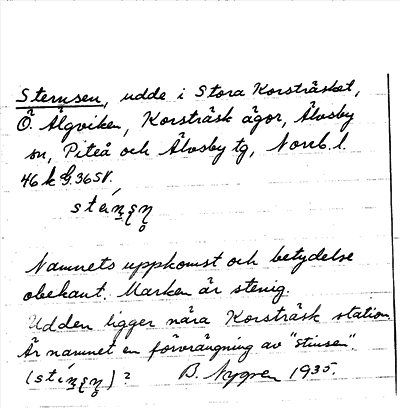 Sternsen, udde i Stora Korsträsket,
Ö. Älgviken, Korsträsk ägor, Älvsby
sn, Piteå och Älvsby tg, Norrb. l.
46 k G. 36 SV.
Namnets uppkomst och betydelse
obekant. Marken är stenig.
Udden ligger nära Korsträsk station.
Är namnet en förvrängning av "stinsen".
B. Nygren 1935.